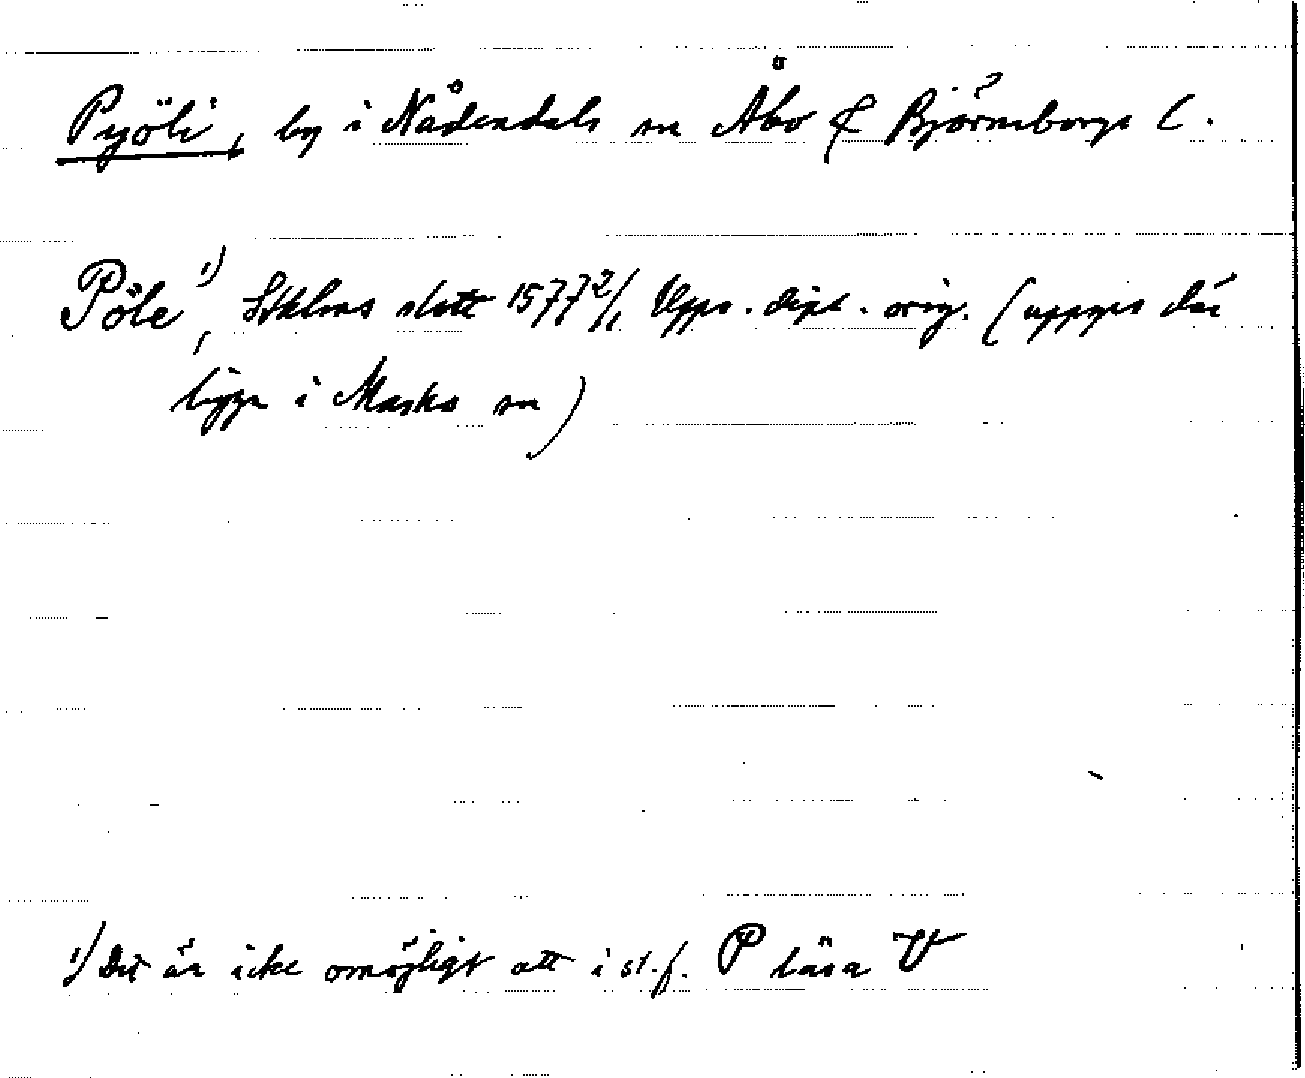 Pyöli, by i Nådendals sn Åbo & Björneborgs l.
Pöle 1), Sthlms slott 1577 2/1 Upps. dipl. orig. (uppges där
ligga i Masko sn)
1) Det är icke omöjligt att i st. f. P läsa V